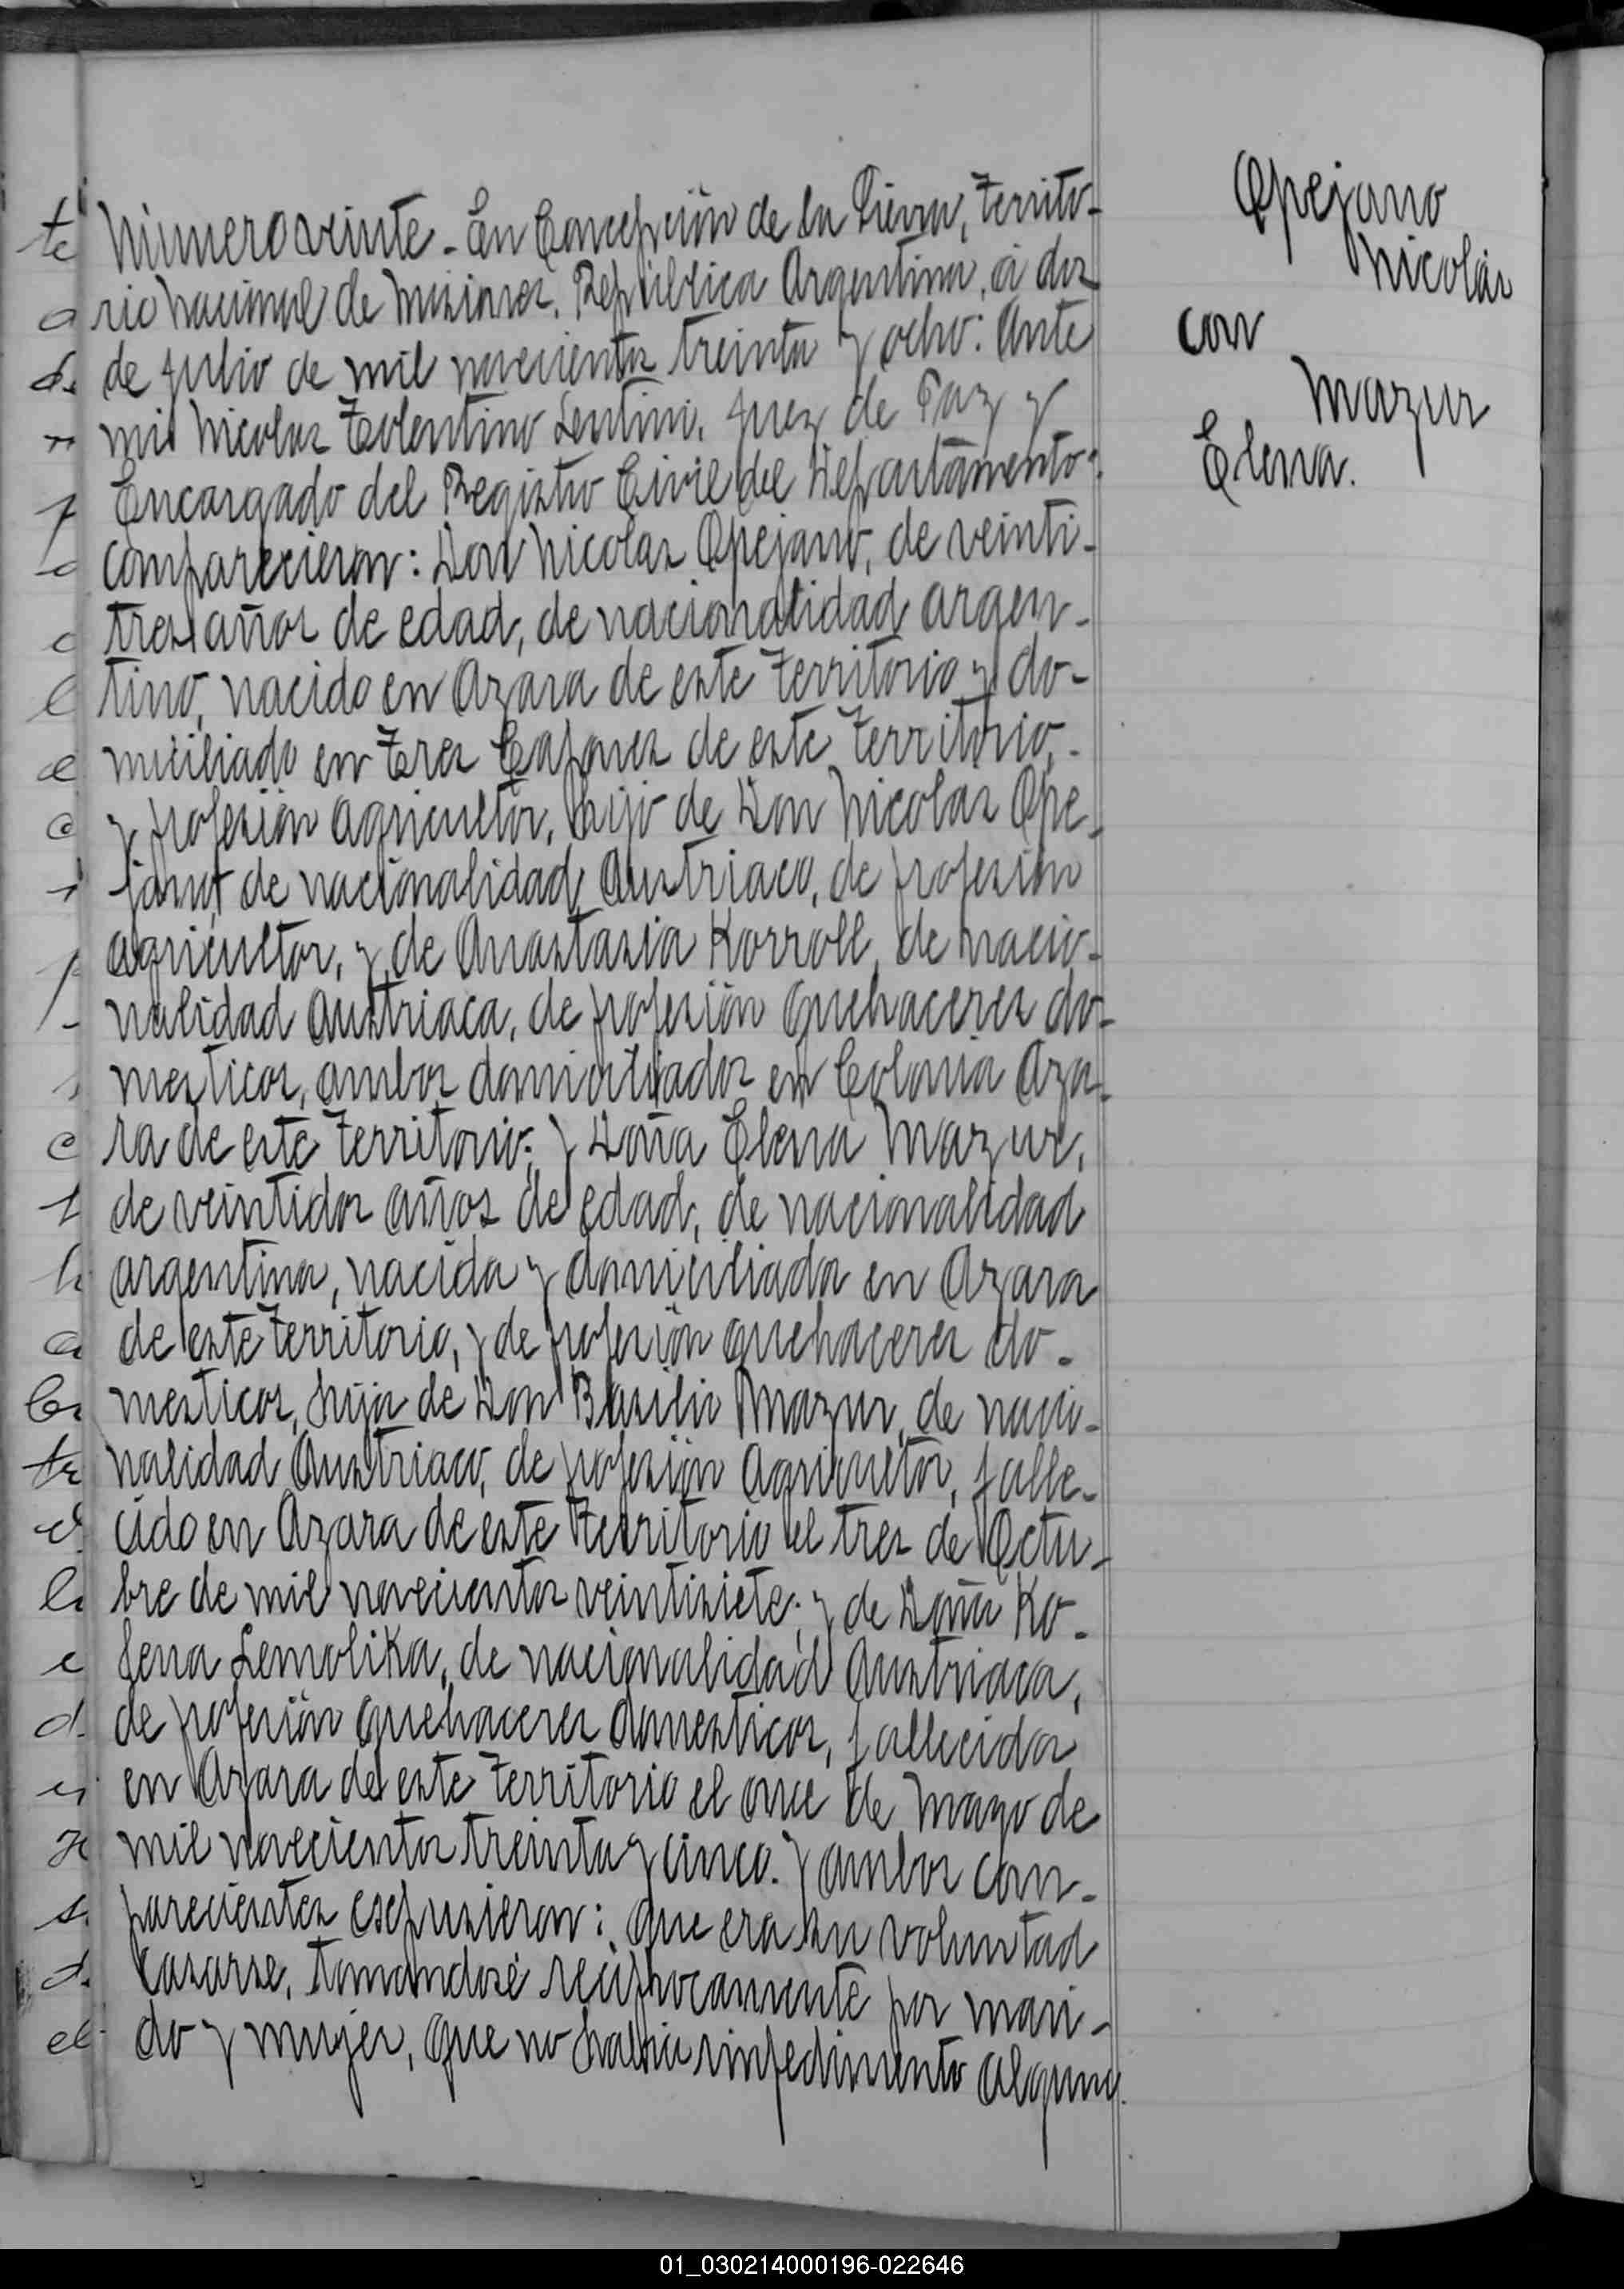 Opejano
Nicolás
con
Mazur
Elena.
Número veinte - En Concepción de la Sierra, Territo-
rio Nacional de Misiones, República Argentina, á dos
de Julio de mil novecientos treinta y ocho: Ante
mi Nicolas Tolentino Sentini, Juez de Paz y
Encargado del Registro Civil del Departamento:
comparecieron: Don Nicolas Opejano, de veinti-
tres años de edad, de nacionalidad argen-
tino, nacido en Azara de este Territorio y do-
miciliado en Tres Capones de este Territorio,-
y profesión agricultor, hijo de Don Nicolás Ope-
jano, de nacionalidad Austriaco, de profesión
agricultor, y de Anastasia Korroll, de nacio-
nalidad Austriaca, de profesión quehaceres do-
mesticos, ambos domiciliados en Colonia Aza-
ra de este Territorio; y Doña Elena Mazur,
de veintidos años de edad, de nacionalidad
argentina, nacida y domiciliada en Azara
de este Territorio, y de profesión quehaceres do-
mesticos, hija de Don Basilio Mazur, de nacio-
nalidad Austriaco, de profesión Agricultor, falle-
cido en Azara de este Territorio el tres de Octu-
bre de mil novecientos veintisiete; y de Doña Ko-
lena Semolika, de nacionalidad Austriaca,
de profesión quehaceres domesticos, fallecida
en Azara de este Territorio el once de Mayo de
mil novecientos treinta y cinco. Y ambos com-
parecientes expusieron: Que era su voluntad
Casarse, tomandosé reciprocamente por mari-
do y mujer, que no habia impedimento alguno
01_030214000196-022646